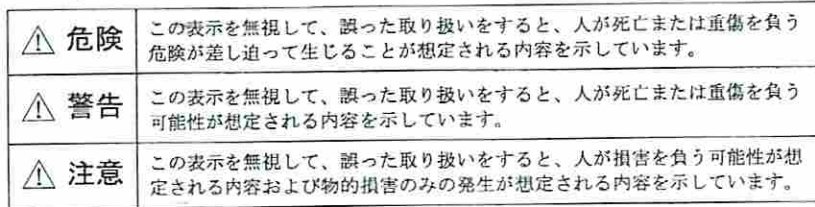 ⚠ 危険
この表示を無視して、誤った取り扱いをすると、人が死亡または重傷を負う
危険が差し迫って生じることが想定される内容を示しています。
⚠ 警告
この表示を無視して、誤った取り扱いをすると、人が死亡または重傷を負う
可能性が想定される内容を示しています。
⚠ 注意
この表示を無視して、誤った取り扱いをすると、人が損害を負う可能性が想
定される内容および物的損害のみの発生が想定される内容を示しています。